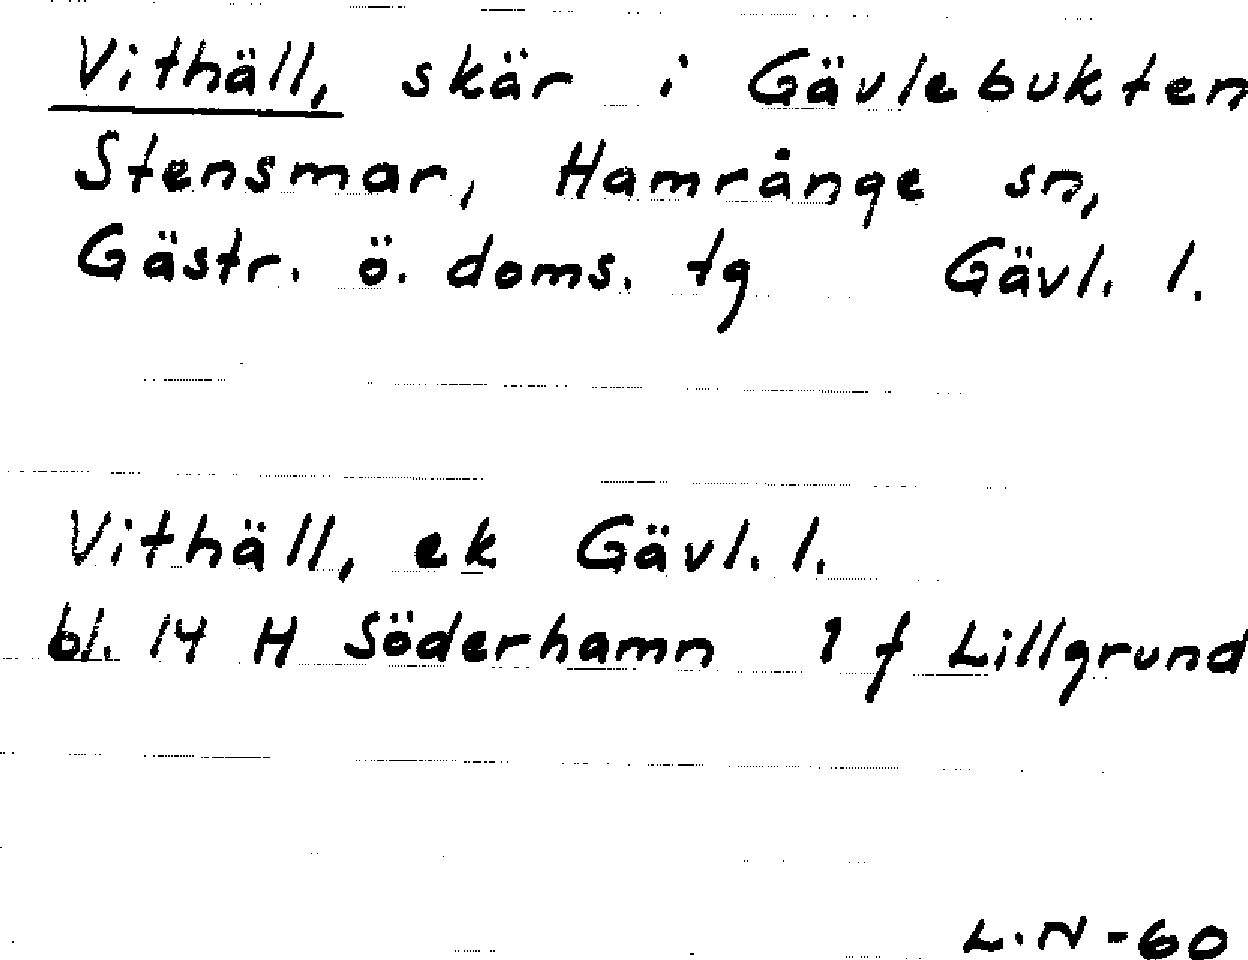 Vithäll, skär i Gävlebukten
Stensmar, Hamrånge sn,
Gästr. ö. doms. tg Gävl. l.
Vithäll, ek Gävl. l.
bl. 14 H Söderhamn 1 f Lillgrund
L.N-60